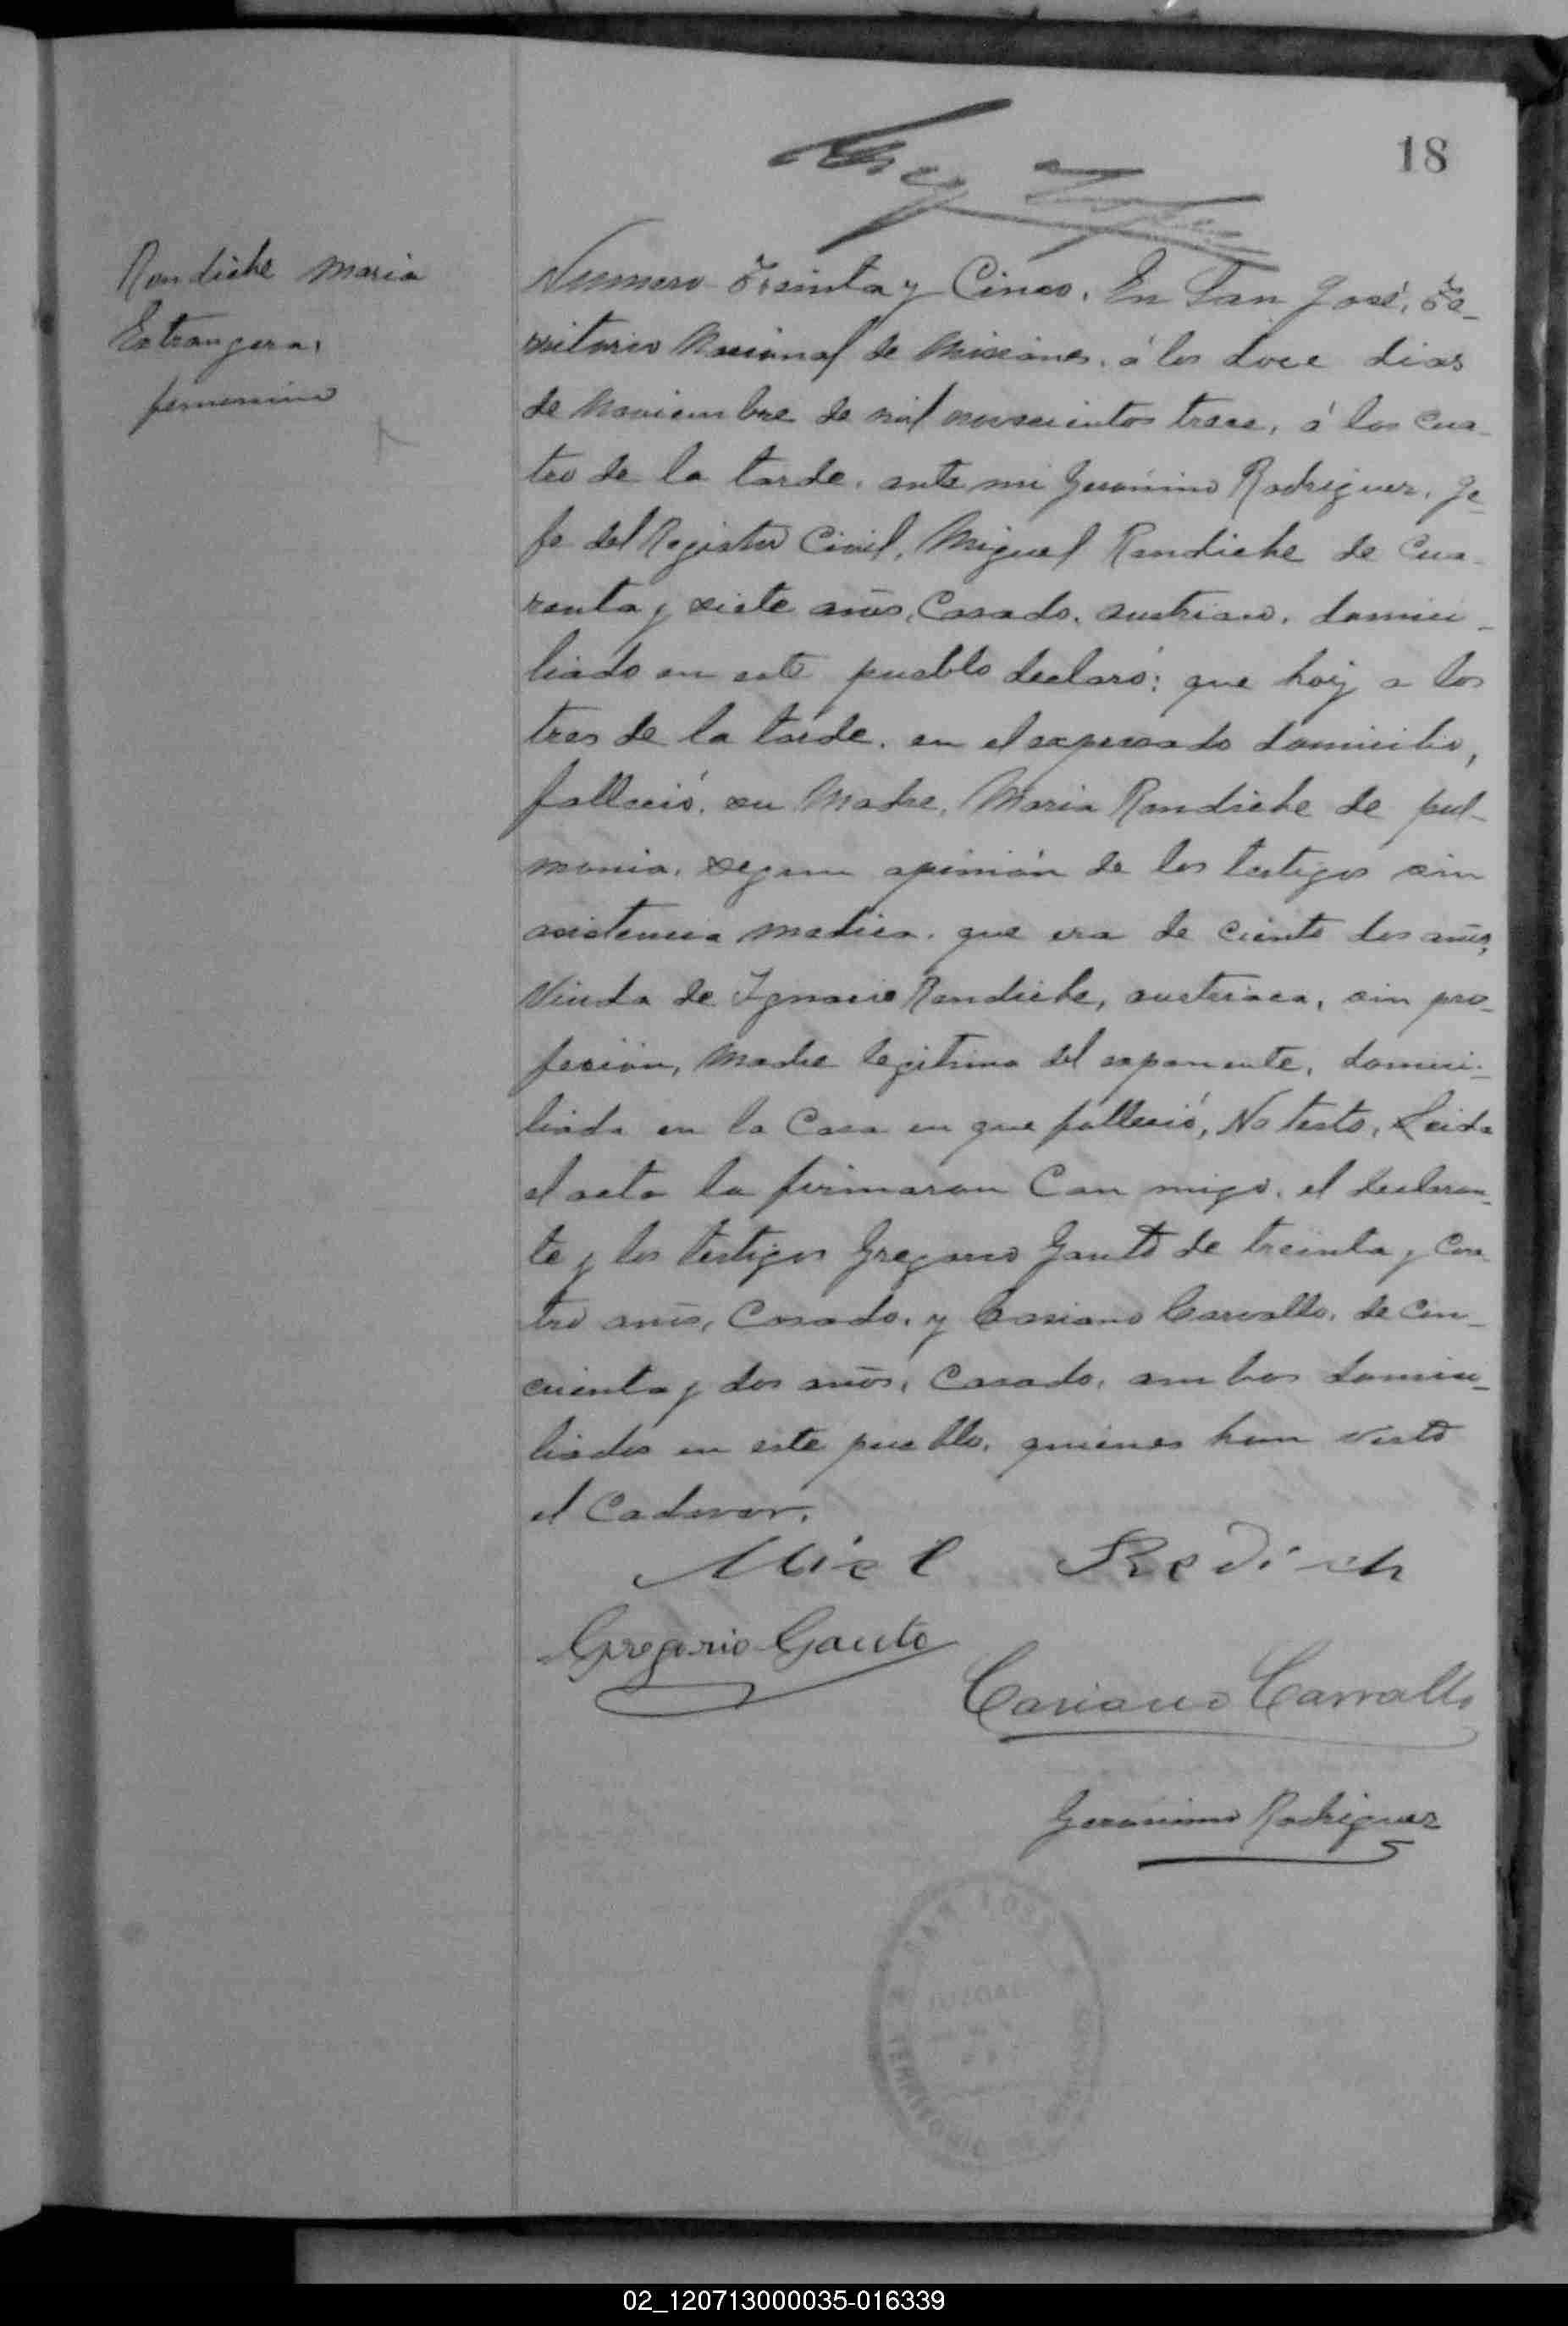 18
Rondiche Maria
Estrangera,
femenino
Numero Treinta y Cinco. En San José, Te-
rritorio Nacional de Misiones, á los doce dias
de Noviembre de mil novecientos trece, á las cua-
tro de la tarde, ante mi Gerónimo Rodriguez, Je-
fe del Registro Civil, Miguel Rondiche de cua-
renta y siete años, Casado, austriaco, domici-
liado en este pueblo declaró: que hoy a las
tres de la tarde, en el expresado domicilio,
fallació, su Madre, Maria Rondiche de pul-
monia, segun opinión de los testigos sin
asistencia medica, que era de ciento dos años,
Viuda de Ignacio Rondiche, austriaca, sin pro-
fesión, Madre legitima del exponente, domici-
liada en la Casa en que falleció, No testo, Leida
el acta la firmaron Con migo, el declaran-
te y los testigos Gregorio Gauto de treinta y cua-
tro años, Casado, y Casiano Carvallo, de cin-
cuenta y dos años, Casado, ambos domici-
liados en este pueblo, quienes han visto
el Cadaver.
Micl Redich
Gregorio Gauto
Casiano Carvallo
Geronimo Rodriguez
SAN JOSE
JUZGADO
TERRITORIO DE
02_120713000035-016339